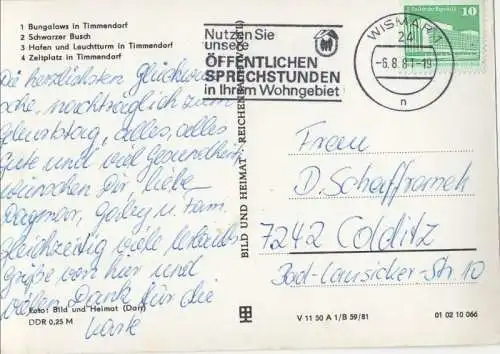 1 Bungalows in Timmendorf
2 Schwarzer Busch
3 Hafen und Leuchtturm in Timmendorf
4 Zeltplatz in Timmendorf
Die herzlichsten Glückwün
sche, nachträglich zum
Geburtstag, alles, alles
Gute und viel Gesundheit
wünschen Dir liebe
Dagmar, u. Fam.
Gleichzeitig viele Urlaubs
grüße von hier und
vielen Dank für die
Karte
Foto: Bild und Heimat (Darr)
DDR 0,25 M
BILD UND HEIMAT · REICHENBACH (VOGTL)
Nutzen Sie
unsere
ÖFFENTLICHEN
SPRECHSTUNDEN
in Ihrem Wohngebiet
WISMAR 1
24
-6.8.81-19
n
10
Frau
D. Schafframek
7242 Colditz
Bad-Lausicker-Str. 10
V 11 50 A 1/B 59/81
01 02 10 066